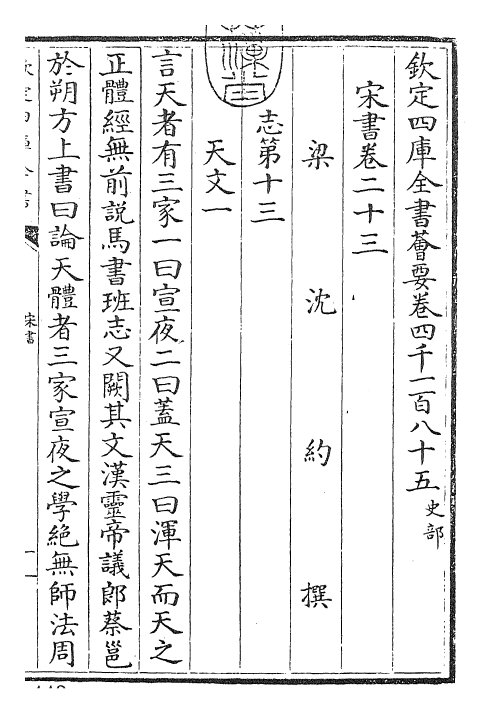 欽定四庫全書薈要卷四千一百八十五 史部
宋書卷二十三
梁 沈 約 撰
志第十三
天文一
言天者有三家一曰宣夜二曰蓋天三曰渾天而天之
正體經無前說馬書班志又闕其文漢靈帝議郎蔡邕
於朔方上書曰論天體者三家宣夜之學絶無師法周
宋書